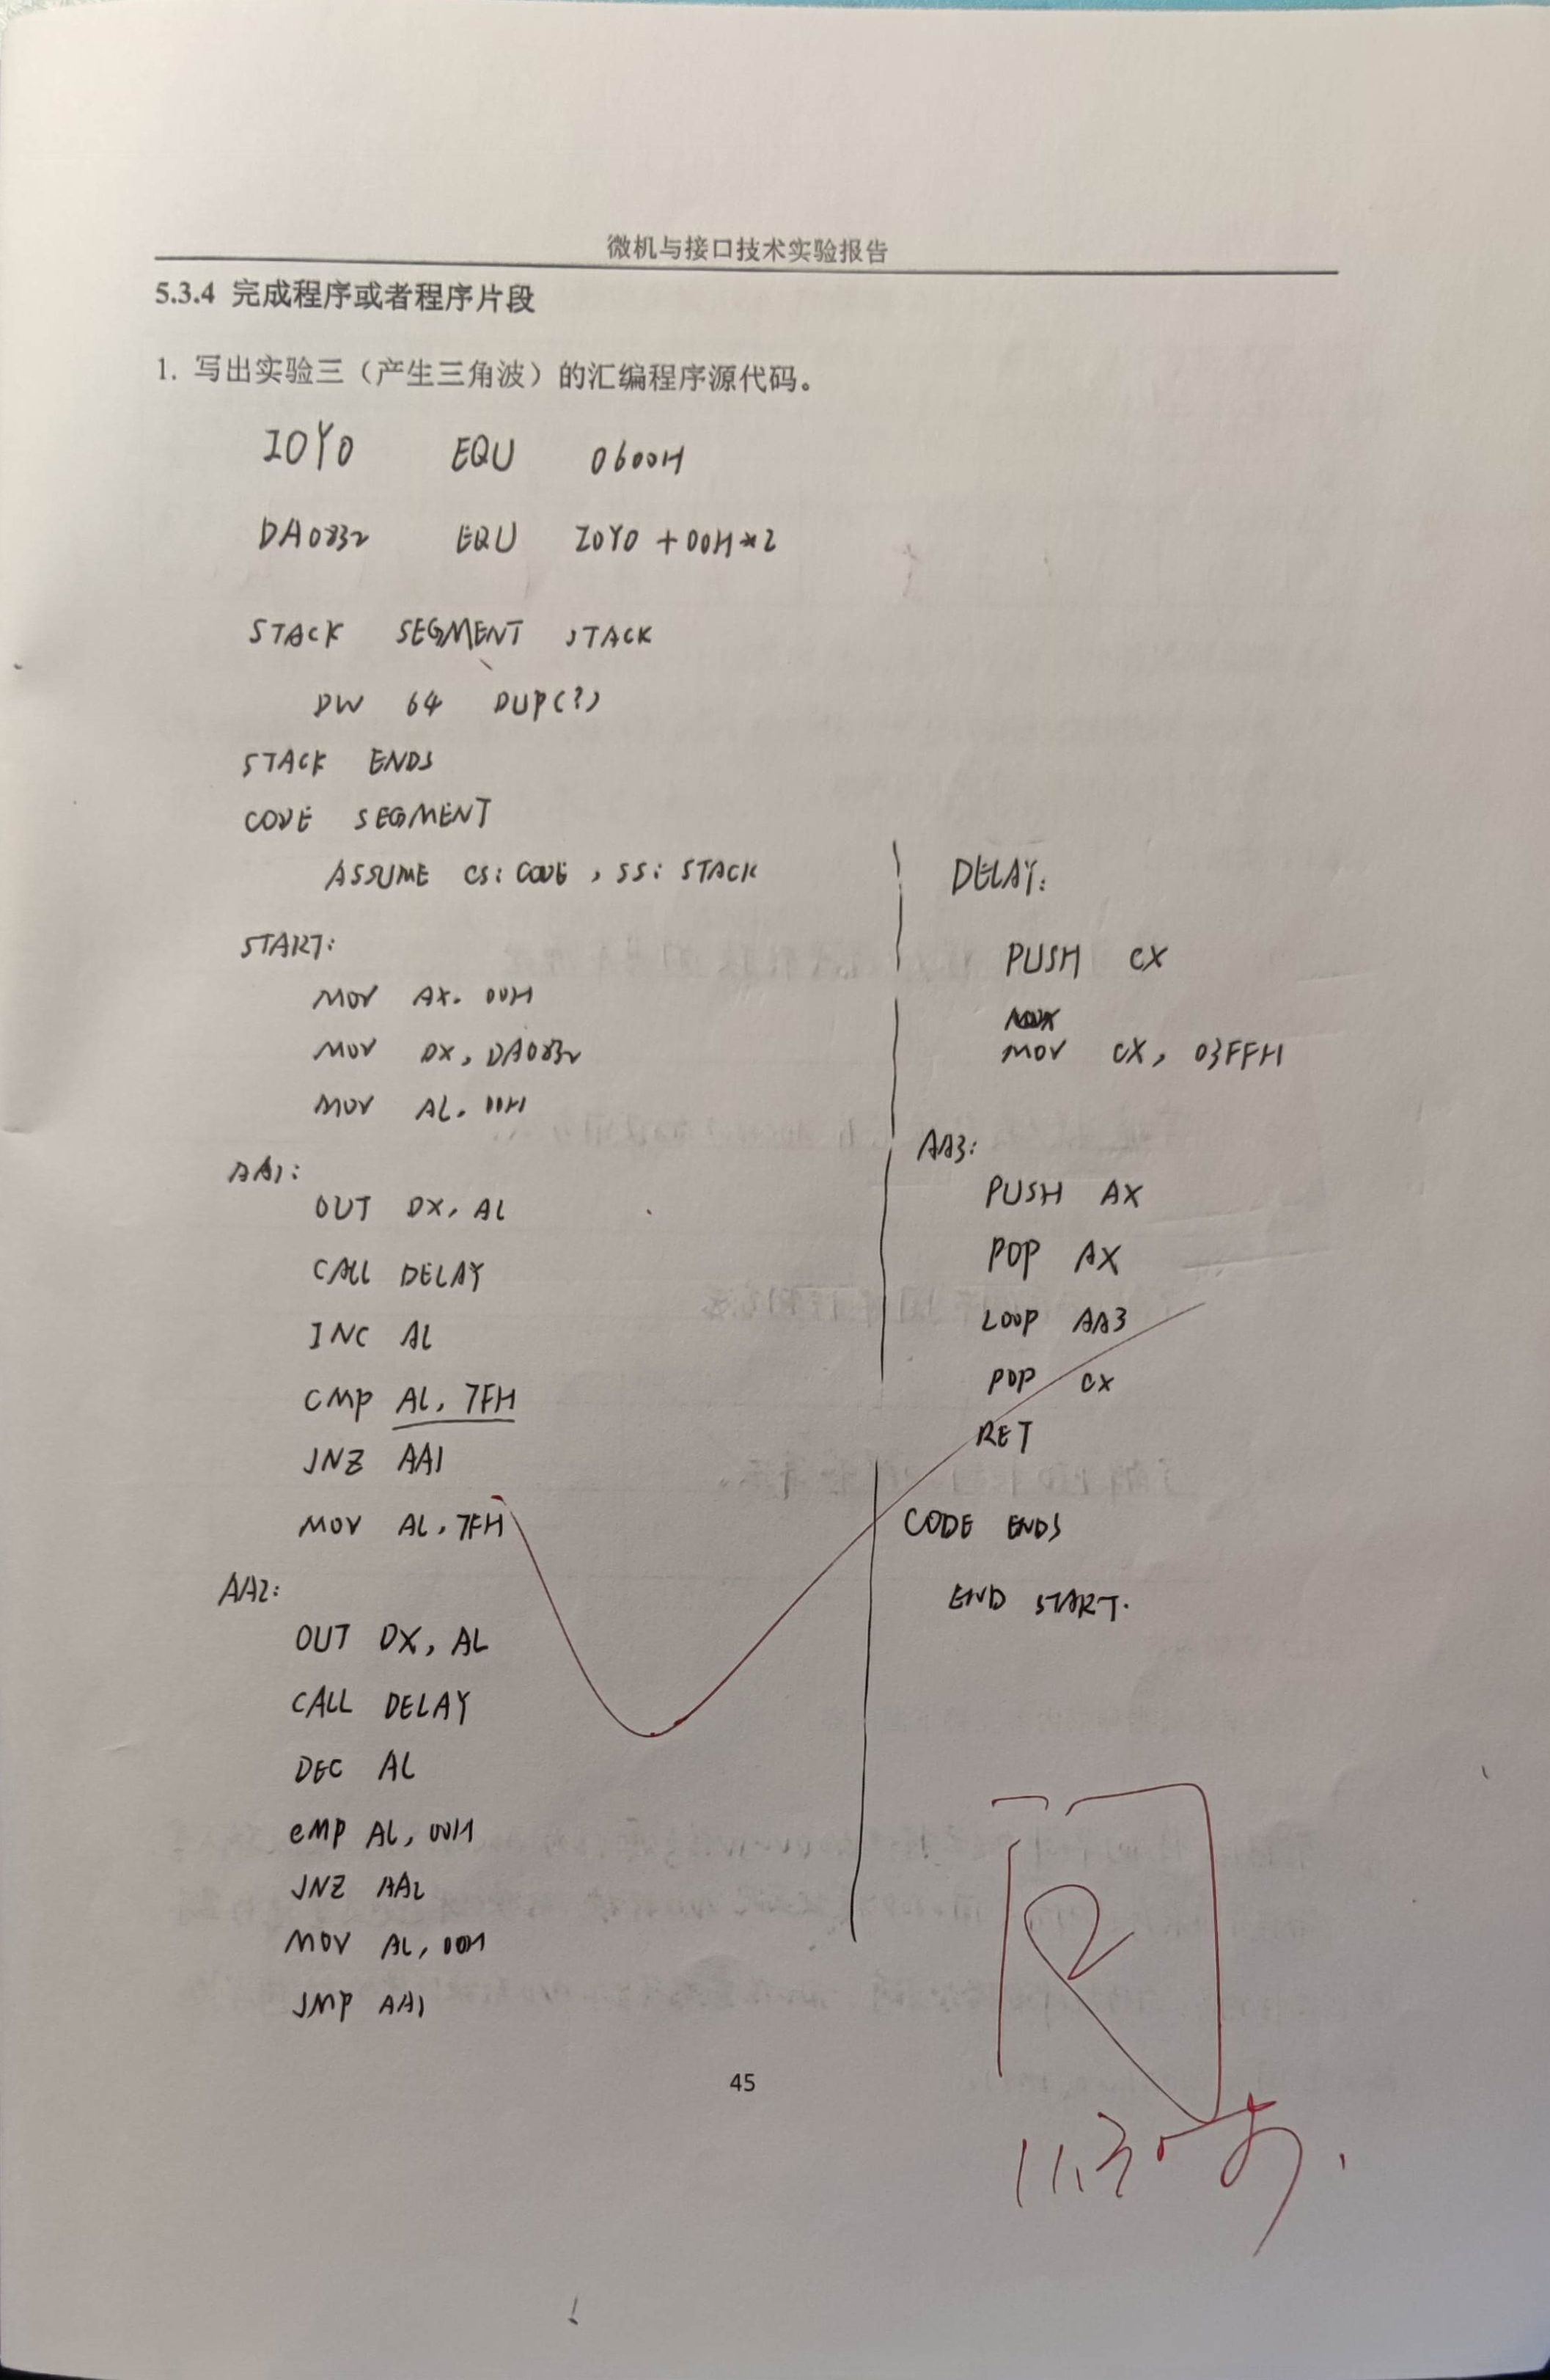 微机与接口技术实验报告
5.3.4 完成程序或者程序片段
1. 写出实验三（产生三角波）的汇编程序源代码。
IOY0 EQU 0600H
DA0832 EQU IOY0 + 00H*2
STACK SEGMENT STACK
DW 64 DUP(?)
STACK ENDS
CODE SEGMENT
ASSUME CS: CODE, SS: STACK
START:
MOV AX, 00H
MOV DX, DA0832
MOV AL, 00H
AA1:
OUT DX, AL
CALL DELAY
INC AL
CMP AL, 7FH
JNZ AA1
MOV AL, 7FH
AA2:
OUT DX, AL
CALL DELAY
DEC AL
CMP AL, 00H
JNZ AA2
MOV AL, 00H
JMP AA1
DELAY:
PUSH CX
MOV CX, 03FFH
AA3:
PUSH AX
POP AX
LOOP AA3
POP CX
RET
CODE ENDS
END START.
45